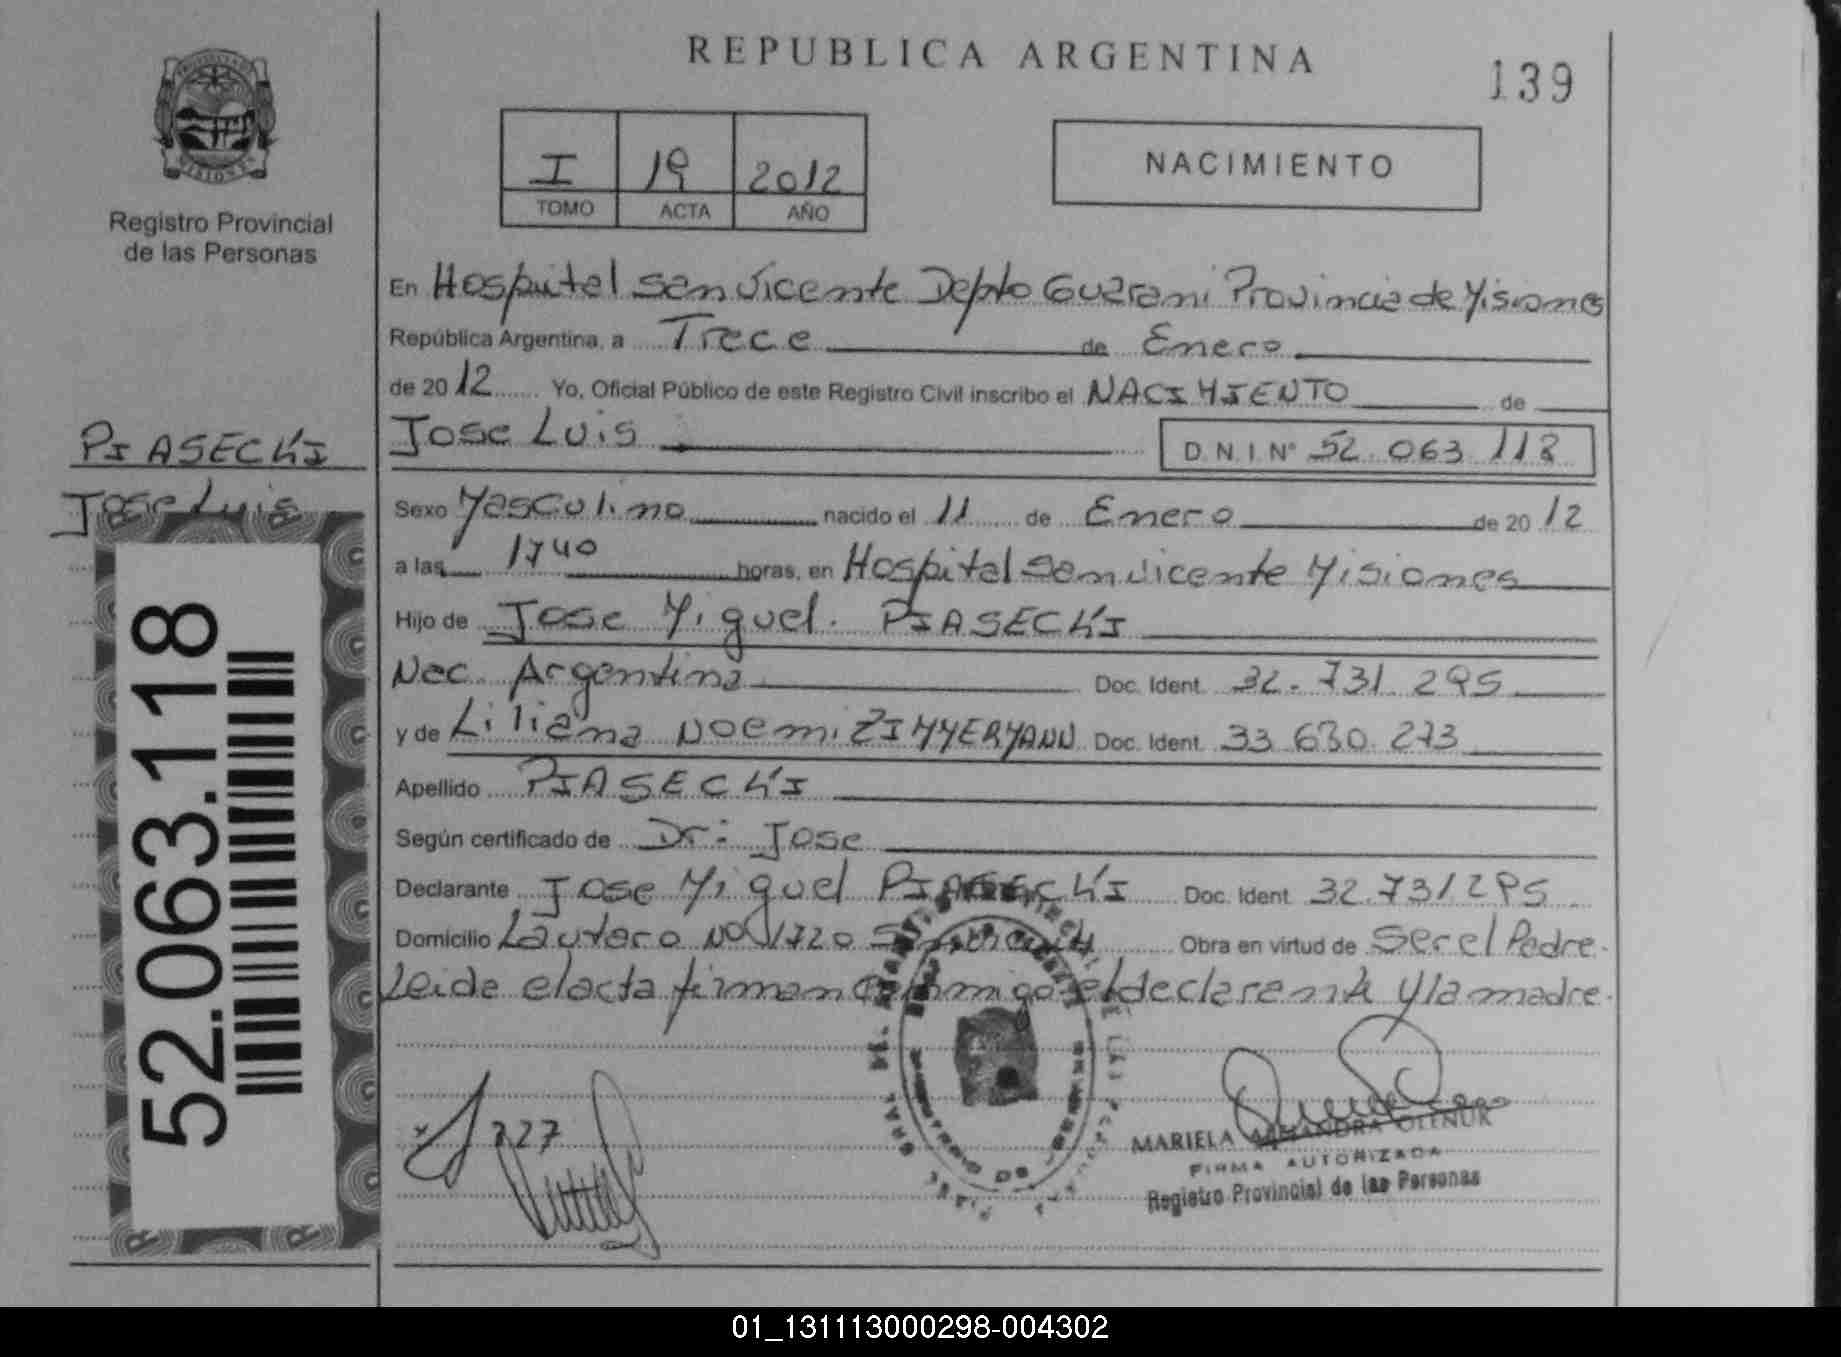 REPUBLICA ARGENTINA
139
PROVINCIA DE
MISIONES
Registro Provincial
de las Personas
I 19 2012
TOMO ACTA AÑO
NACIMIENTO
En Hospital San Vicente Depto Guarani Provincia de Misiones
República Argentina, a Trece de Enero
de 2012 Yo, Oficial Público de este Registro Civil inscribo el NACIMIENTO de
Jose Luis D.N.I. Nº 52.063.118
PIASECKI
Jose Luis
Sexo Masculino nacido el 11 de Enero de 2012
a las 1740 horas, en Hospital San Vicente Misiones
Hijo de Jose Miguel. PIASECKI
Nac. Argentina Doc. Ident. 32.731.295
y de Liliana Noemi ZIMMERMANN Doc. Ident. 33.630.273
Apellido PIASECKI
Según certificado de Dr: Jose
Declarante Jose Miguel PIASECKI Doc. Ident. 32.731295
Domicilio Lautaro Nº 1720 Obra en virtud de Ser el Padre.
Leida el acta firman conmigo el declarante y la madre.
52.063.118
MARIELA ALEJANDRA OLENUK
FIRMA AUTORIZADA
Registro Provincial de las Personas
01_131113000298-004302